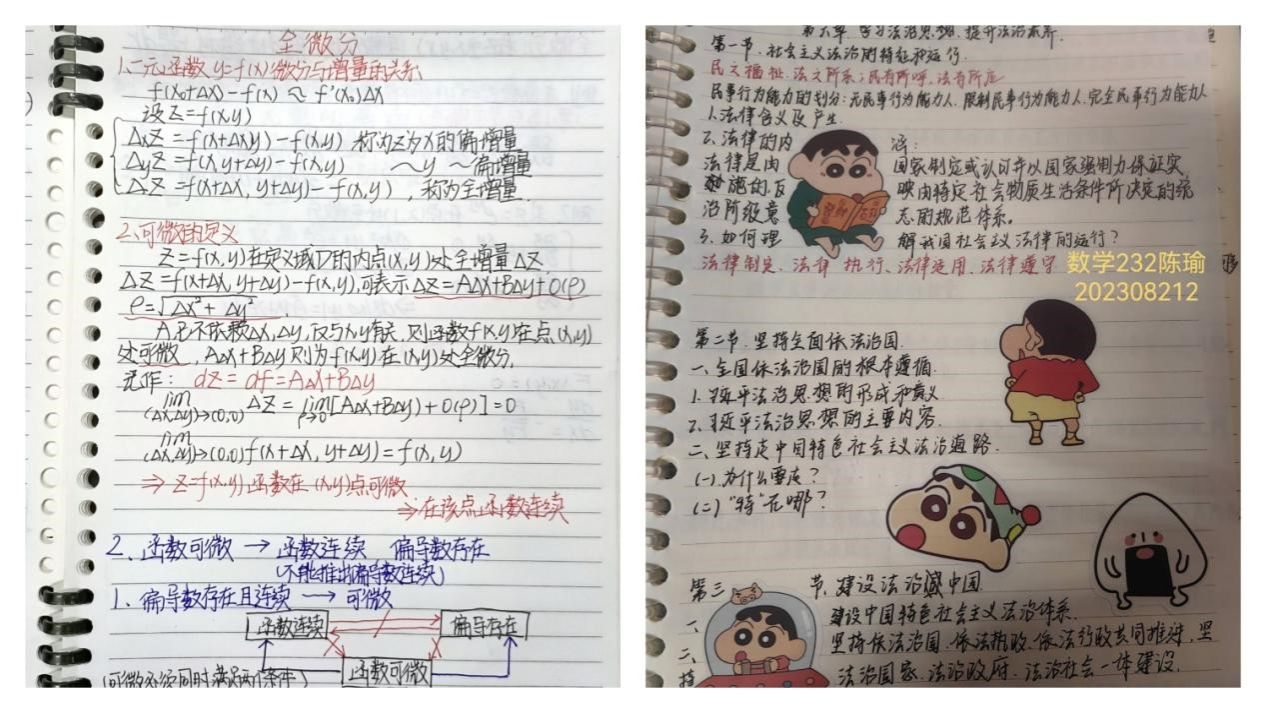 全微分
1.一元函数 y=f(x)微分与增量的关系
f(x₀+Δx)-f(x) ~ f'(x₀)Δx
设Z=f(x,y)
ΔxZ = f(x+Δx,y)-f(x,y) 称为Z为x的偏增量
ΔyZ = f(x,y+Δy)-f(x,y) ~y ~偏增量
ΔZ =f(x+Δx, y+Δy)-f(x,y) , 称为全增量.
2.可微的定义
Z=f(x,y)在定义域D的内点(x,y)处全增量ΔZ
ΔZ=f(x+Δx,y+Δy)-f(x,y),可表示ΔZ=AΔx+BΔy+o(ρ)
ρ=√Δx²+Δy².
A,B不依赖Δx,Δy,仅与x,y有关,则函数f(x,y)在点(x,y)
处可微, AΔx+BΔy则为f(x,y)在(x,y)处全微分,
记作: dZ=df=AΔx+BΔy
lim (Δx,Δy)→(0,0) ΔZ = lim ρ→0 [AΔx+BΔy)+o(ρ)]=0
lim (Δx,Δy)→(0,0) f(x+Δx, y+Δy)=f(x,y)
⇒ Z=f(x,y)函数在(x,y)点可微
⇒在该点函数连续
2、函数可微 → 函数连续 偏导数存在
(不能推出偏导数连续)
1、偏导数存在且连续 → 可微
函数连续 偏导存在
函数可微
(可微必须同时满足两个条件)
第六章 学习法治思想 提升法治素养.
第一节.社会主义法治的特征和运行.
民之福祉.法之所系;民有所呼,法有所应
民事行为能力的划分:无民事行为能力人.限制民事行为能力人.完全民事行为能力人
1.法律含义及产生.
2.法律的内 涵:
法律是由 国家制定或认可并以国家强制力保证实
施的反 映由特定社会物质生活条件所决定的统
治阶级意 志的规范体系。
3.如何理 解我国社会主义法律的运行?
法律制定、法律执行、法律适用、法律遵守
数学232陈瑜
202308212
第二节.坚持全面依法治国.
一.全国依法治国的根本遵循.
1.习近平法治思想的形成和意义
2.习近平法治思想的主要内容.
二.坚持走中国特色社会主义法治道路.
(一).为什么要走?
(二)"特"在哪?
第三 节.建设法治中国.
一、 建设中国特色社会主义法治体系.
二、 坚持依法治国.依法执政.依法行政共同推进.坚
持 法治国家.法治政府.法治社会一体建设.